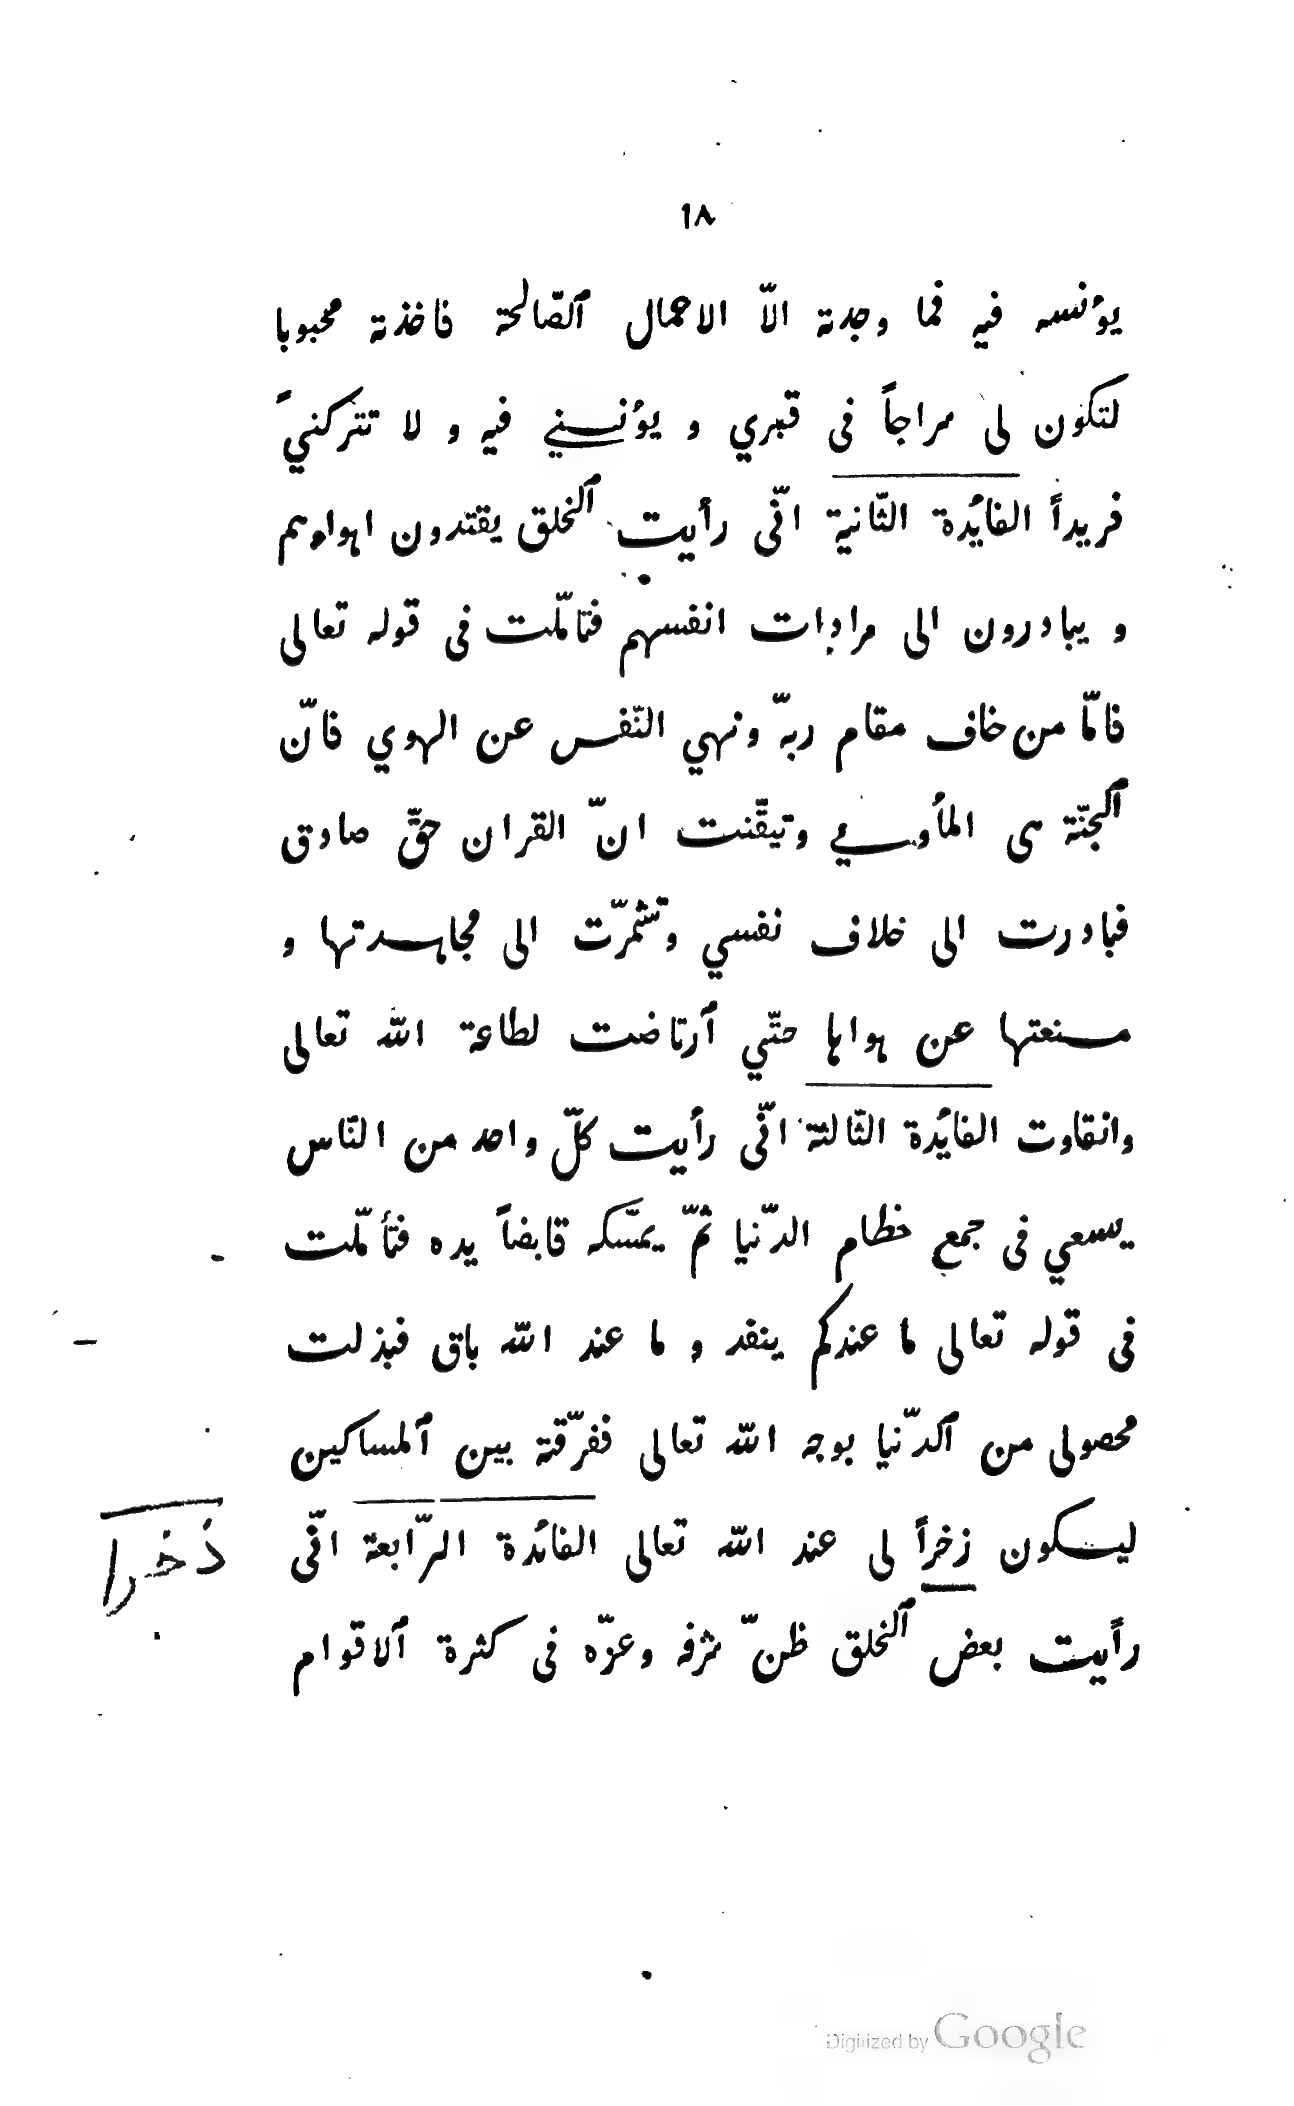 ١٨
يؤنسه فيه فما وجدته الّا الاعمال ٱلصّالحة فاخذته محبوبا
لتكون لى سراجاً فى قبري و يؤنسني فيه و لا تتركنيً
فريداً الفائدة الثّانية انّى رأيت ٱلخلق يقتدون اهواءهم
و يبادرون الى مرادات انفسهم فتامّلت فى قوله تعالى
فامّا من خاف مقام ربّه ونهي النّفس عن الهوي فانّ
ٱلجنّة هى المأوي وتيقّنت انّ القران حقّ صادق
فبادرت الى خلاف نفسي وتشمّرت الى مجاهدتها و
منعتها عن هواها حتّي ٱرتاضت لطاعة الله تعالى
وانقاوت الفائدة الثّالثة انّى رأيت كلّ واحد من النّاس
يسعي فى جمع حظام الدّنيا ثمّ يمسّكه قابضاً يده فتأمّلت
فى قوله تعالى ما عندكم ينفد و ما عند الله باق فبذلت
محصولى من ٱلدّنيا بوجه الله تعالى ففرّقته بين ٱلمساكين
ليكون زخراً لى عند الله تعالى الفائدة الرّابعة انّى
ذخرا
رأيت بعض ٱلخلق ظنّ شرفه وعزّه فى كثرة ٱلاقوام
Digitized by Google